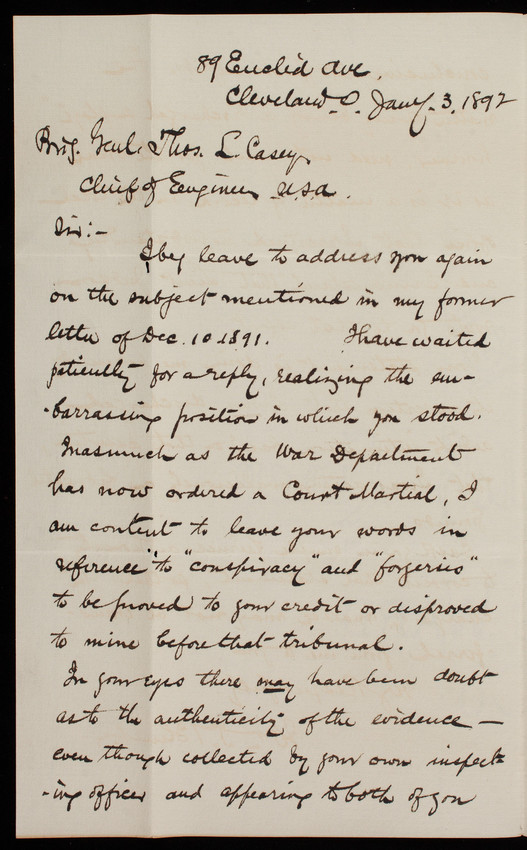 89 Euclid Ave.
Cleveland, O. Jany. 3, 1892
Brig. Genl. Thos. L. Casey
Chief of Engineers U.S.A.
Sir:-
I beg leave to address you again
on the subject mentioned in my former
letter of Dec. 10. 1891. I have waited
patiently for a reply, realizing the em-
-barrassing position in which you stood.
Inasmuch as the War Department
has now ordered a Court Martial, I
am content to leave your words in
reference to "conspiracy" and "forgeries"
to be proved to your credit or disproved
to mine before that tribunal.
In your eyes there may have been doubt
as to the authenticity of the evidence —
even though collected by your own inspect-
-ing officer and appearing to both of you